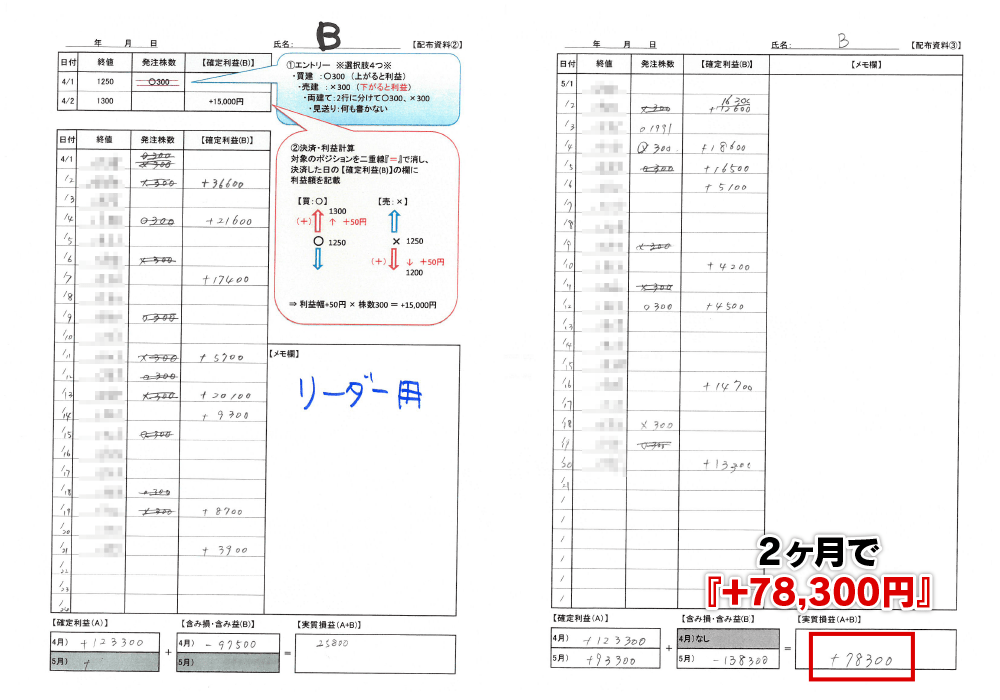 年 月 日
氏名: B
【配布資料②】
日付 終値 発注株数 【確定利益(B)】
4/1 1250 〇300
4/2 1300 +15,000円
①エントリー ※選択肢4つ※
・買建 :〇300 (上がると利益)
・売建 :×300 (下がると利益)
・両建て:2行に分けて〇300、×300
・見送り:何も書かない
②決済・利益計算
対象のポジションを二重線『=』で消し、
決済した日の【確定利益(B)】の欄に
利益額を記載
【買:〇】 【売:×】
1300
(+) ↑ +50円
〇 1250
× 1250
(+) ↓ +50円
1200
⇒ 利益幅+50円 × 株数300 = +15,000円
日付 終値 発注株数 【確定利益(B)】
4/1 〇300
×300
/2 ×300 +36600
/3
/4 〇300 +21600
/5
/6 ×300
/7 +17400
/8
/9 〇300
/10
/11 ×300 +5700
/12 〇300
/13 ×300 +20100
/14 +9300
/15 〇300
/16
/17
/18 〇300
/19 ×300 +8700
/20
/21 +3900
/22
/23
/24
【メモ欄】
リーダー用
【確定利益(A)】 【含み損・含み益(B)】 【実質損益(A+B)】
4月) +123300
5月) +
+
4月) -97500
5月)
=
25800
年 月 日
氏名: B
【配布資料③】
日付 終値 発注株数 【確定利益(B)】 【メモ欄】
5/1
/2 ×300
/3
/4 300 +18600
/5 〇300 +16500
/6 +5100
/7
/8
/9 ×300
/10 +4200
/11 ×300
/12 〇300 +4500
/13
/14
/15
/16 +14700
/17
/18 ×300
/19 〇300
/20
/21
2ヶ月で
『+78,300円』
【確定利益(A)】 【含み損・含み益(B) 【実質損益(A+B)】
4月) +123300
5月) +93300
+
4月)なし
5月) -138300
=
+78300